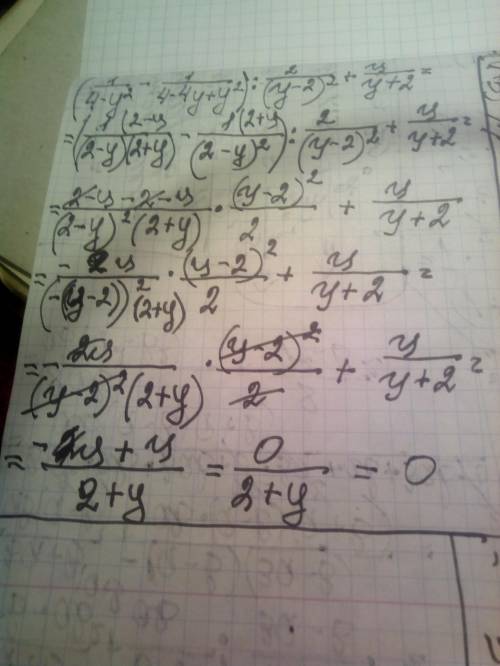 (1/(4-y²) - 1/(4-4y+y²)) : 2/(y-2)² + y/(y+2) =
= (1(2-y)/((2-y)(2+y)) - 1(2+y)/(2-y)²) : 2/(y-2)² + y/(y+2) =
= (2-y-2-y)/((2-y)²(2+y)) · (y-2)²/2 + y/(y+2)
= -2y/((-(y-2))²(2+y)) · (y-2)²/2 + y/(y+2) =
= -2y/((y-2)²(2+y)) · (y-2)²/2 + y/(y+2) =
= (-y+y)/(2+y) = 0/(2+y) = 0